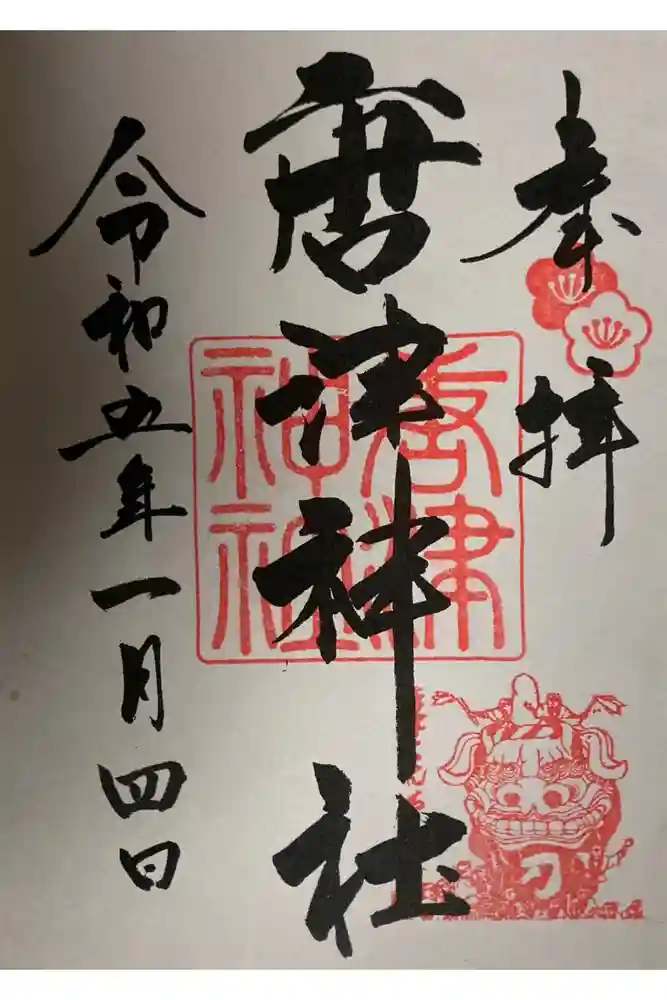 奉拝
唐津神社
唐津
神社
刀
令和五年一月四日